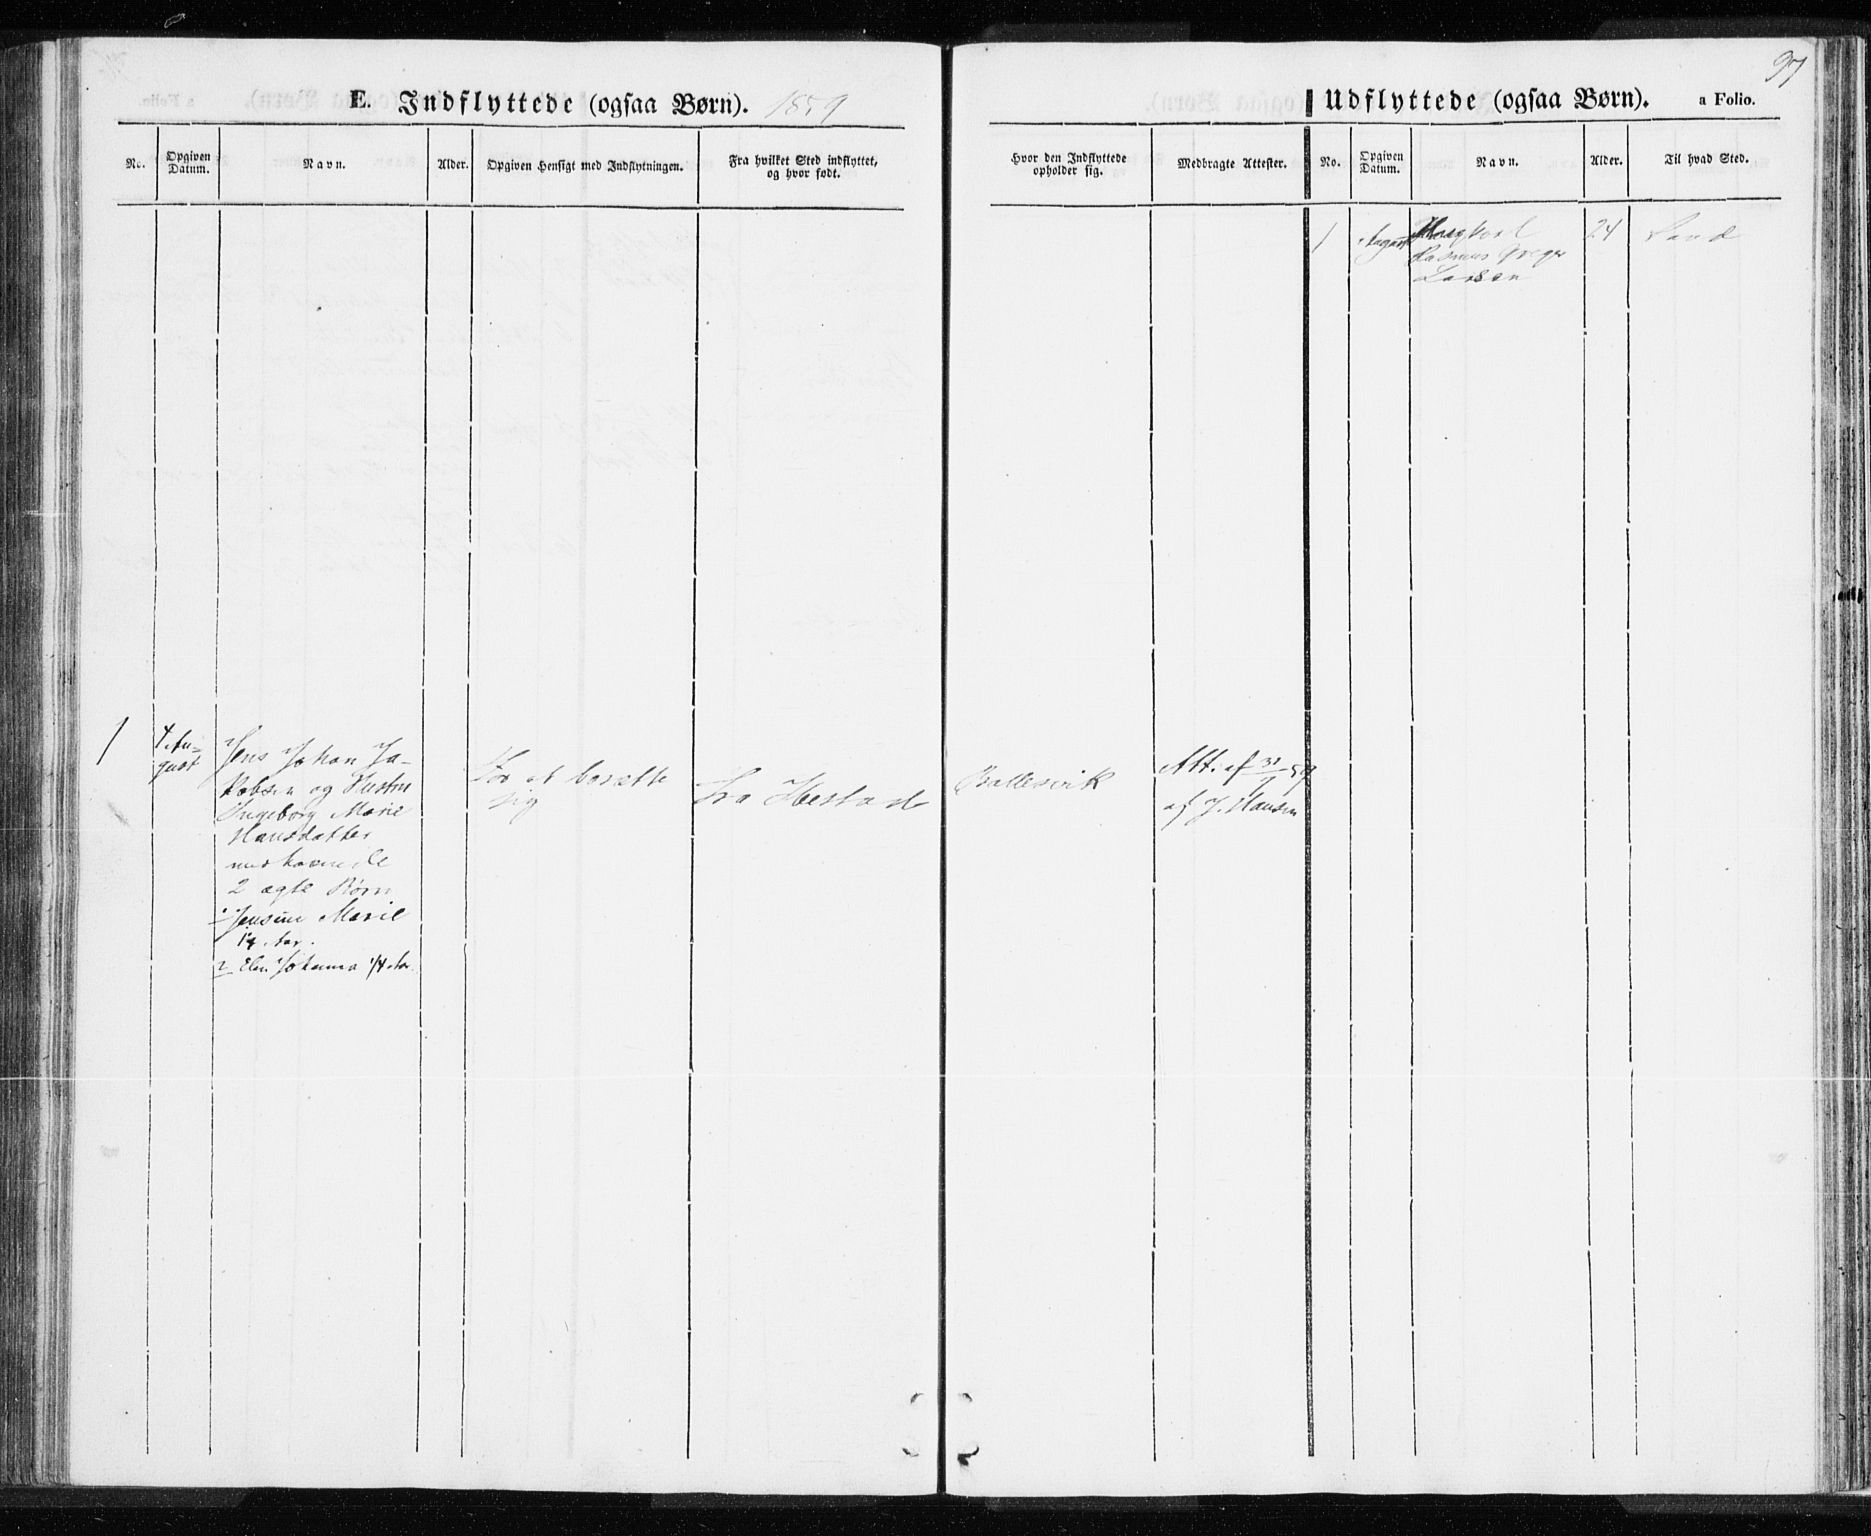 97
E. Indflyttede (ogsaa Børn). 1859
No.
Opgiven
Datum.
Navn.
Alder.
Opgiven Hensigt med Indflytningen.
Fra hvilket Sted indflyttet,
og hvor født.
1
4 Au=
gust
Jens Johan Ja-
kobsen og Hustru
Ingeborg Marie
Hansdatter
medhavende
2 ægte Børn
1 Jensine Marie
2 Elen Johanna 1/4 Aar
For at bosætte
sig
fra Ibestad
Udflyttede (ogsaa Børn). a Folio.
Hvor den Indflyttede
opholder sig.
Medbragte Attester.
No.
Opgiven
Datum.
Navn.
Alder.
Til hvad Sted.
Ballesvik
Att. af 31/7 59
af J. Hansen
1
August
Ungkarl
Rasmus Greger
Larsen
24
Sand